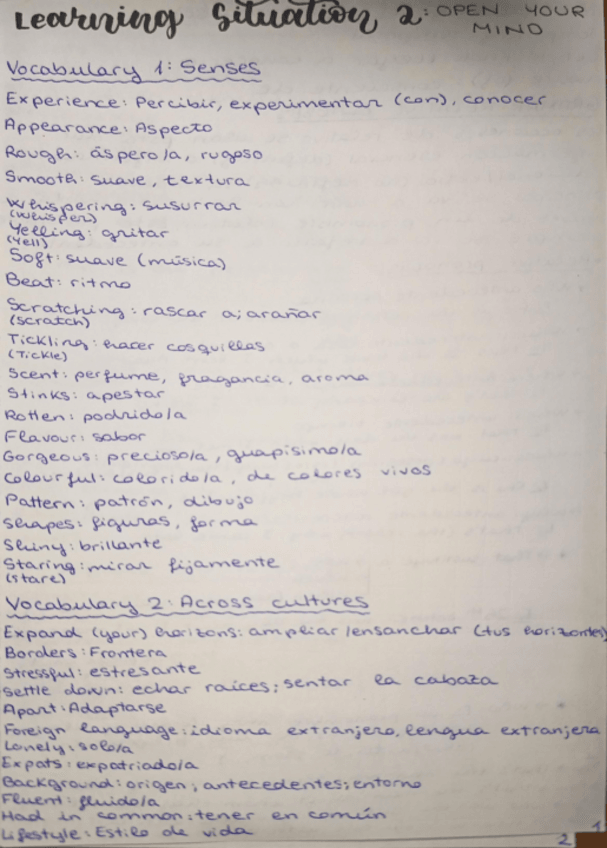 Learning Situation 2: OPEN YOUR
MIND
Vocabulary 1: Senses
Experience: Percibir, experimentar (con), conocer
Appearance: Aspecto
Rough: áspero/a, rugoso
Smooth: suave, textura
Whispering: susurrar
(whisper)
Yelling: gritar
(Yell)
Soft: suave (música)
Beat: ritmo
Scratching: rascar a; arañar
(scratch)
Tickling: hacer cosquillas
(Tickle)
Scent: perfume, fragancia, aroma
Stinks: apestar
Rotten: podrido/a
Flavour: sabor
Gorgeous: precioso/a, guapísimo/a
Colourful: colorido/a, de colores vivos
Pattern: patrón, dibujo
Shapes: figuras, forma
Shiny: brillante
Staring: mirar fijamente
(stare)
Vocabulary 2: Across cultures
Expand (your) horizons: ampliar/ensanchar (tus horizontes)
Borders: Frontera
Stressful: estresante
Settle down: echar raíces; sentar la cabaza
Apart: Adaptarse
Foreign language: idioma extranjero, lengua extranjera
Lonely: solo/a
Expats: expatriado/a
Background: origen; antecedentes; entorno
Fluent: fluido/a
Had in common: tener en común
Lifestyle: Estilo de vida
1
2